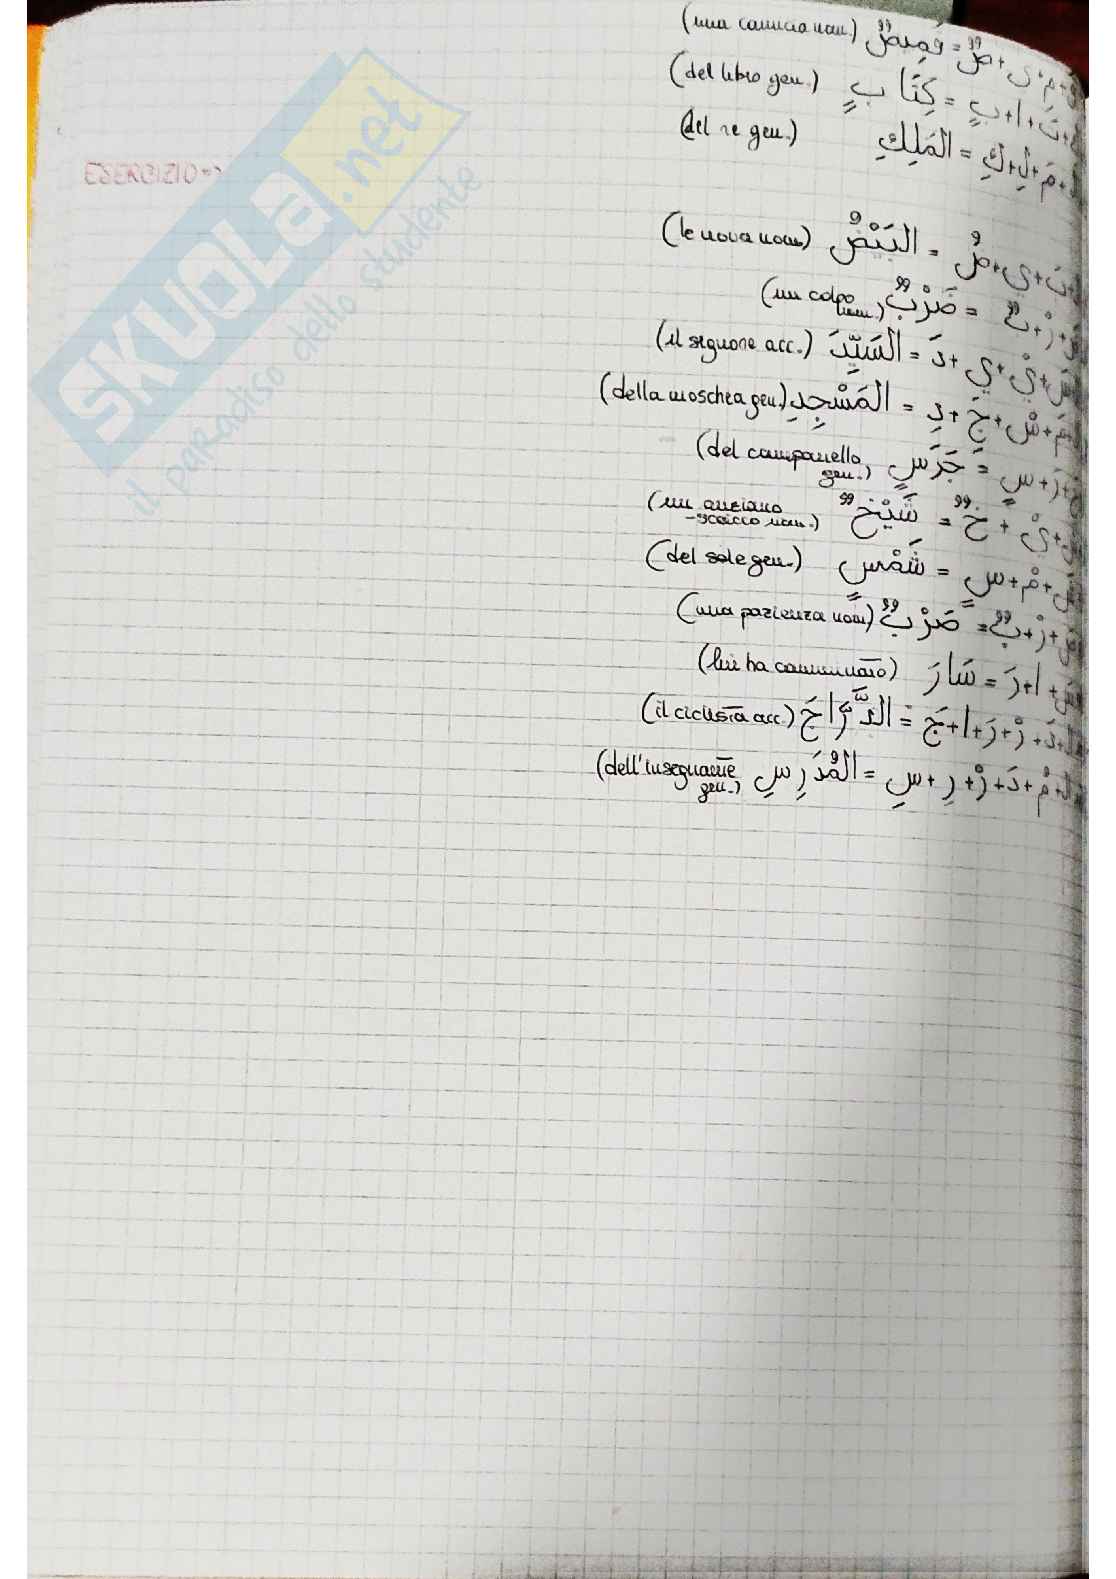 (una camicia nom.) قَمِيصٌ = صٌ + ي + مِ +
(del libro gen.) كِتَابٍ = بٍ + ا + تَ +
(del re gen.) المَلِكِ = كِ + لِ + مَ +
ESERCIZIO =>
(le uova nom) البَيْضُ = ضُ + ي +
(un colpo nom.) ضَرْبٌ = بٌ + رْ +
(il signore acc.) السَيِّدَ = دَ + ي + يْ +
(della moschea gen.) المَسْجِدِ = دِ + جِ + سْ + مَ
(del campanello gen.) جَرَسٍ = سٍ + رَ +
(un anziano -sceicco nom.) شَيْخٌ = خٌ + يْ +
(del sole gen.) شَمْسٍ = سٍ + مْ +
(una pazienza nom) صَرْبٌ = بٌ + رْ +
(lui ha camminato) سَارَ = رَ + ا +
(il ciclista acc.) الدَّرَّاجَ = جَ + ا + رَ + رْ + دَ +
(dell'insegnante gen.) المُدَرِسِ = سِ + رِ + رْ + دَ + مُ +
SKUOLA.net
il paradiso dello studente